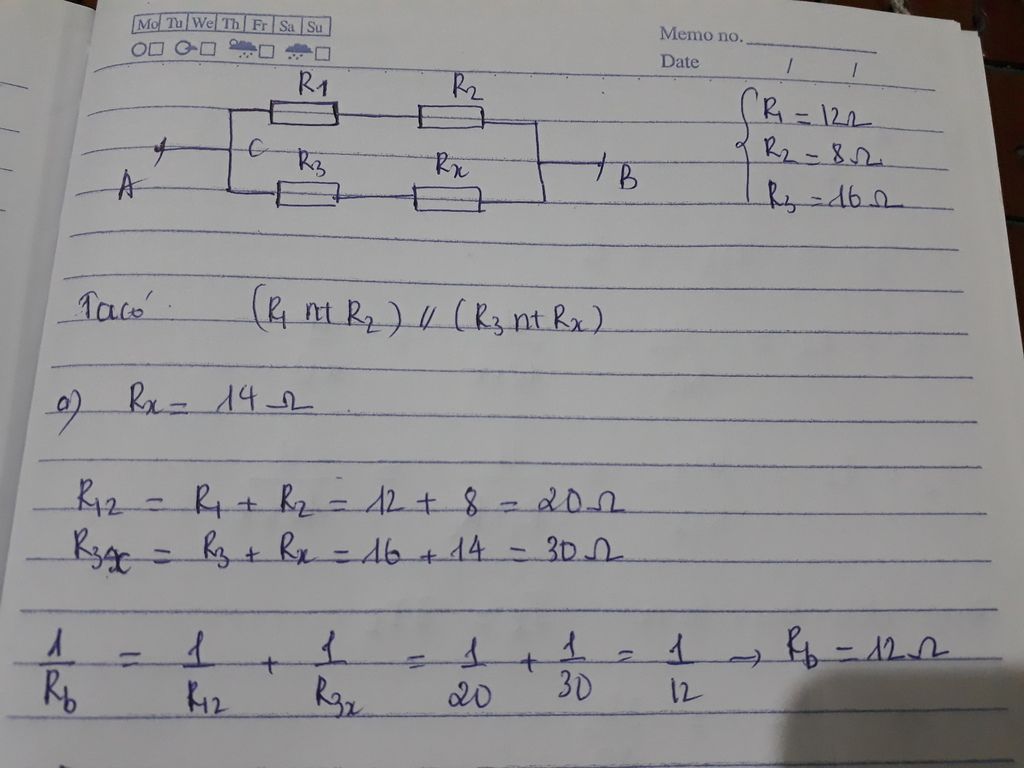 Mo Tu We Th Fr Sa Su
Memo no.
Date / /
R1 R2
R1 = 12Ω
C
R3 Rx
R2 = 8Ω
A B
R3 = 16Ω
Ta có: (R1 nt R2) // (R3 nt Rx)
a) Rx = 14Ω
R12 = R1 + R2 = 12 + 8 = 20Ω
R3x = R3 + Rx = 16 + 14 = 30Ω
1/Rb = 1/R12 + 1/R3x = 1/20 + 1/30 = 1/12 → Rb = 12Ω